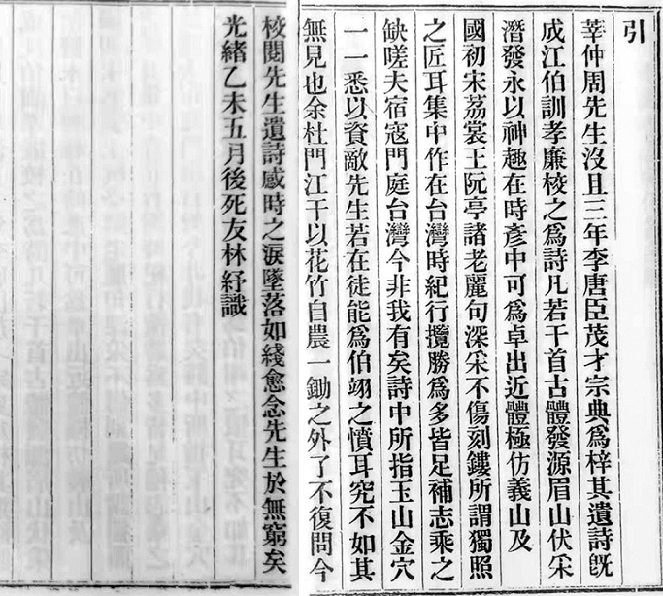 引
莘仲周先生沒且三年李唐臣茂才宗典爲梓其遺詩旣
成江伯訓孝廉校之爲詩凡若干首古體發源眉山伏采
潛發永以神趣在時彥中可爲卓出近體極仿義山及
國初宋荔裳王阮亭諸老麗句深采不傷刻鏤所謂獨照
之匠耳集中作在台灣時紀行攬勝爲多皆足補志乘之
缺嗟夫宿寇門庭台灣今非我有矣詩中所指玉山金穴
一一悉以資敵先生若在徒能爲伯翊之憤耳究不如其
無見也余杜門江干以花竹自農一鋤之外了不復問今
校閱先生遺詩感時之淚墜落如綫愈念先生於無窮矣
光緒乙未五月後死友林紓識